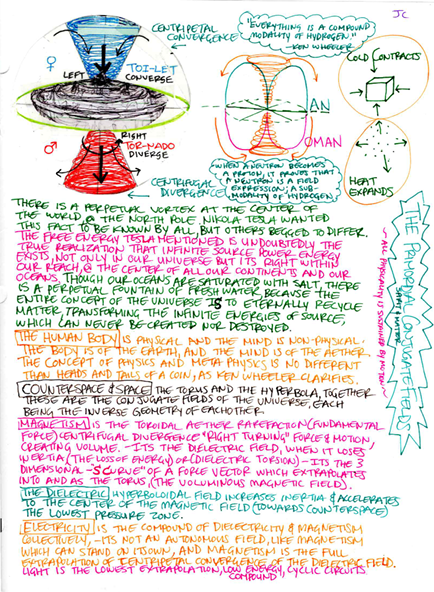 JC
CENTRIPETAL
CONVERGENCE
"EVERYTHING IS A COMPOUND
MODALITY OF HYDROGEN."
-KEN WHEELER
♀
TOI-LET
CONVERGE
LEFT
COLD CONTRACTS
AN
OMAN
♂
RIGHT
TOR-NADO
DIVERGE
CENTRIFUGAL
DIVERGENCE
WHEN A NEUTRON BECOMES
A PROTON, IT PROVES THAT
A NEUTRON IS A FIELD
EXPRESSION; A SUB-
MODALITY OF HYDROGEN.
HEAT
EXPANDS
THE PRIMORDIAL CONJUGATE FIELDS
SPIRIT & WATER
~ALL PHYSICALITY IS SUSTAINED BY MOTION~
THERE IS A PERPETUAL VORTEX AT THE CENTER OF
THE WORLD, @ THE NORTH POLE. NIKOLA TESLA WANTED
THIS FACT TO BE KNOWN BY ALL, BUT OTHERS BEGGED TO DIFFER.
THE FREE ENERGY TESLA MENTIONED IS UNDOUBTEDLY THE
TRUE REALIZATION THAT INFINITE SOURCE POWER ENERGY
EXISTS, NOT ONLY IN OUR UNIVERSE BUT ITS RIGHT WITHIN
OUR REACH, @ THE CENTER OF ALL OUR CONTINENTS AND OUR
OCEANS. THOUGH OUR OCEANS ARE SATURATED WITH SALT, THERE
IS A PERPETUAL FOUNTAIN OF FRESH WATER, BECAUSE THE
ENTIRE CONCEPT OF THE UNIVERSE IS TO ETERNALLY RECYCLE
MATTER, TRANSFORMING THE INFINITE ENERGIES OF SOURCE,
WHICH CAN NEVER BE CREATED NOR DESTROYED.
THE HUMAN BODY IS PHYSICAL AND THE MIND IS NON-PHYSICAL.
THE BODY IS OF THE EARTH, AND THE MIND IS OF THE AETHER.
THE CONCEPT OF PHYSICS AND META PHYSICS IS NO DIFFERENT
THAN HEADS AND TAILS OF A COIN, AS KEN WHEELER CLARIFIES.
COUNTERSPACE & SPACE THE TORUS AND THE HYPERBOLA, TOGETHER
THESE ARE THE CONJUGATE FIELDS OF THE UNIVERSE, EACH
BEING THE INVERSE GEOMETRY OF EACHOTHER.
MAGNETISM IS THE TOROIDAL AETHER RAREFACTION (FUNDAMENTAL
FORCE) CENTRIFUGAL DIVERGENCE "RIGHT TURNING" FORCE & MOTION,
CREATING VOLUME. -ITS THE DIELECTRIC FIELD, WHEN IT LOSES
INERTIA (THE LOSS OF ENERGY) OR (DIELECTRIC TORSION) -ITS THE 3
DIMENSIONAL -S CURVE" OF A FORCE VECTOR WHICH EXTRAPOLATES
INTO AND AS THE TORUS, (THE VOLUMINOUS MAGNETIC FIELD).
THE DIELECTRIC HYPERBOLOIDAL FIELD INCREASES INERTIA & ACCELERATES
TO THE CENTER OF THE MAGNETIC FIELD (TOWARDS COUNTERSPACE)
THE LOWEST PRESSURE ZONE.
ELECTRICITY IS THE COMPOUND OF DIELECTRICITY & MAGNETISM
COLLECTIVELY, -ITS NOT AN AUTONOMOUS FIELD, LIKE MAGNETISM
WHICH CAN STAND ON ITS OWN, AND MAGNETISM IS THE FULL
EXTRAPOLATION OF CENTRIPETAL CONVERGENCE OF THE DIELECTRIC FIELD.
LIGHT IS THE LOWEST EXTRAPOLATION, LOW ENERGY, CYCLIC CIRCUITS
COMPOUND